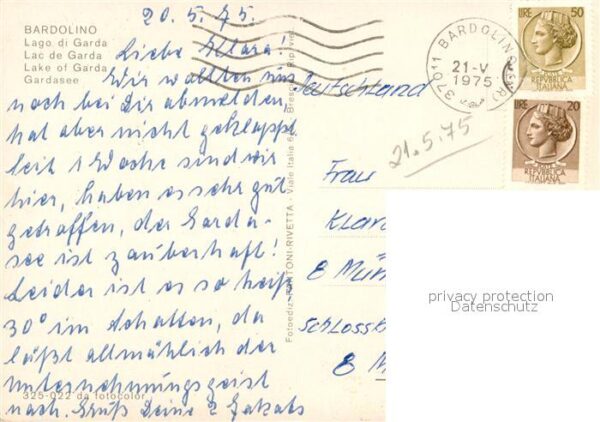 BARDOLINO
Lago di Garda
Lac de Garda
Lake of Garda
Gardasee
20.5.75.
Liebe Klara!
Wir wollten uns
noch bei Dir abmelden,
hat aber nicht geklappt.
Seit 1 Woche sind wir
hier, haben es sehr gut
getroffen, der Garda-
see ist zauberhaft!
Leider ist es so heiß
30° im Schatten, da
läßt allmählich der
Unternehmungsgeist
nach. Gruß Deine 2
325-022 da fotocolor
Fotoediz. RIVETTA - Viale Italia Brescia Rip. viet.
37011 BARDOLINO (VR)
21-V
1975
LIRE 50
REPVBBLICA
ITALIANA
LIRE 20
REPVBBLICA
ITALIANA
Deutschland
21.5.75
Frau
Klara
8 Mün
Schloss
8 M
privacy protection
Datenschutz